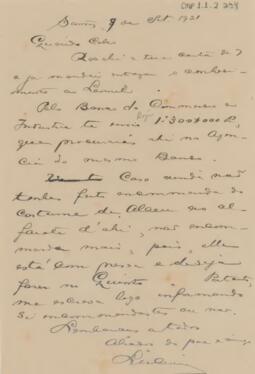 CMP 1.1.2 254
Santos, 9 de Set 1921
Querido
Recebi a tua carta de 7
e ja mandei entregar o conhe-
mento ao Leonel.
Pelo Banco do Commercio e
Industria te envio hoje 1:300$000 R,
que procurarás ahi na Agen-
cia do mesmo Banco.
Caso ainda não
tenhas feito encommenda do
costume de ao al-
faiate d'ahi, não encom-
mende mais, pois, elle
está com pressa e deseja
fazer no
me escreva logo informando
se encommendastes ou não.
Lembranças a todos
Abraços do pae e amigo